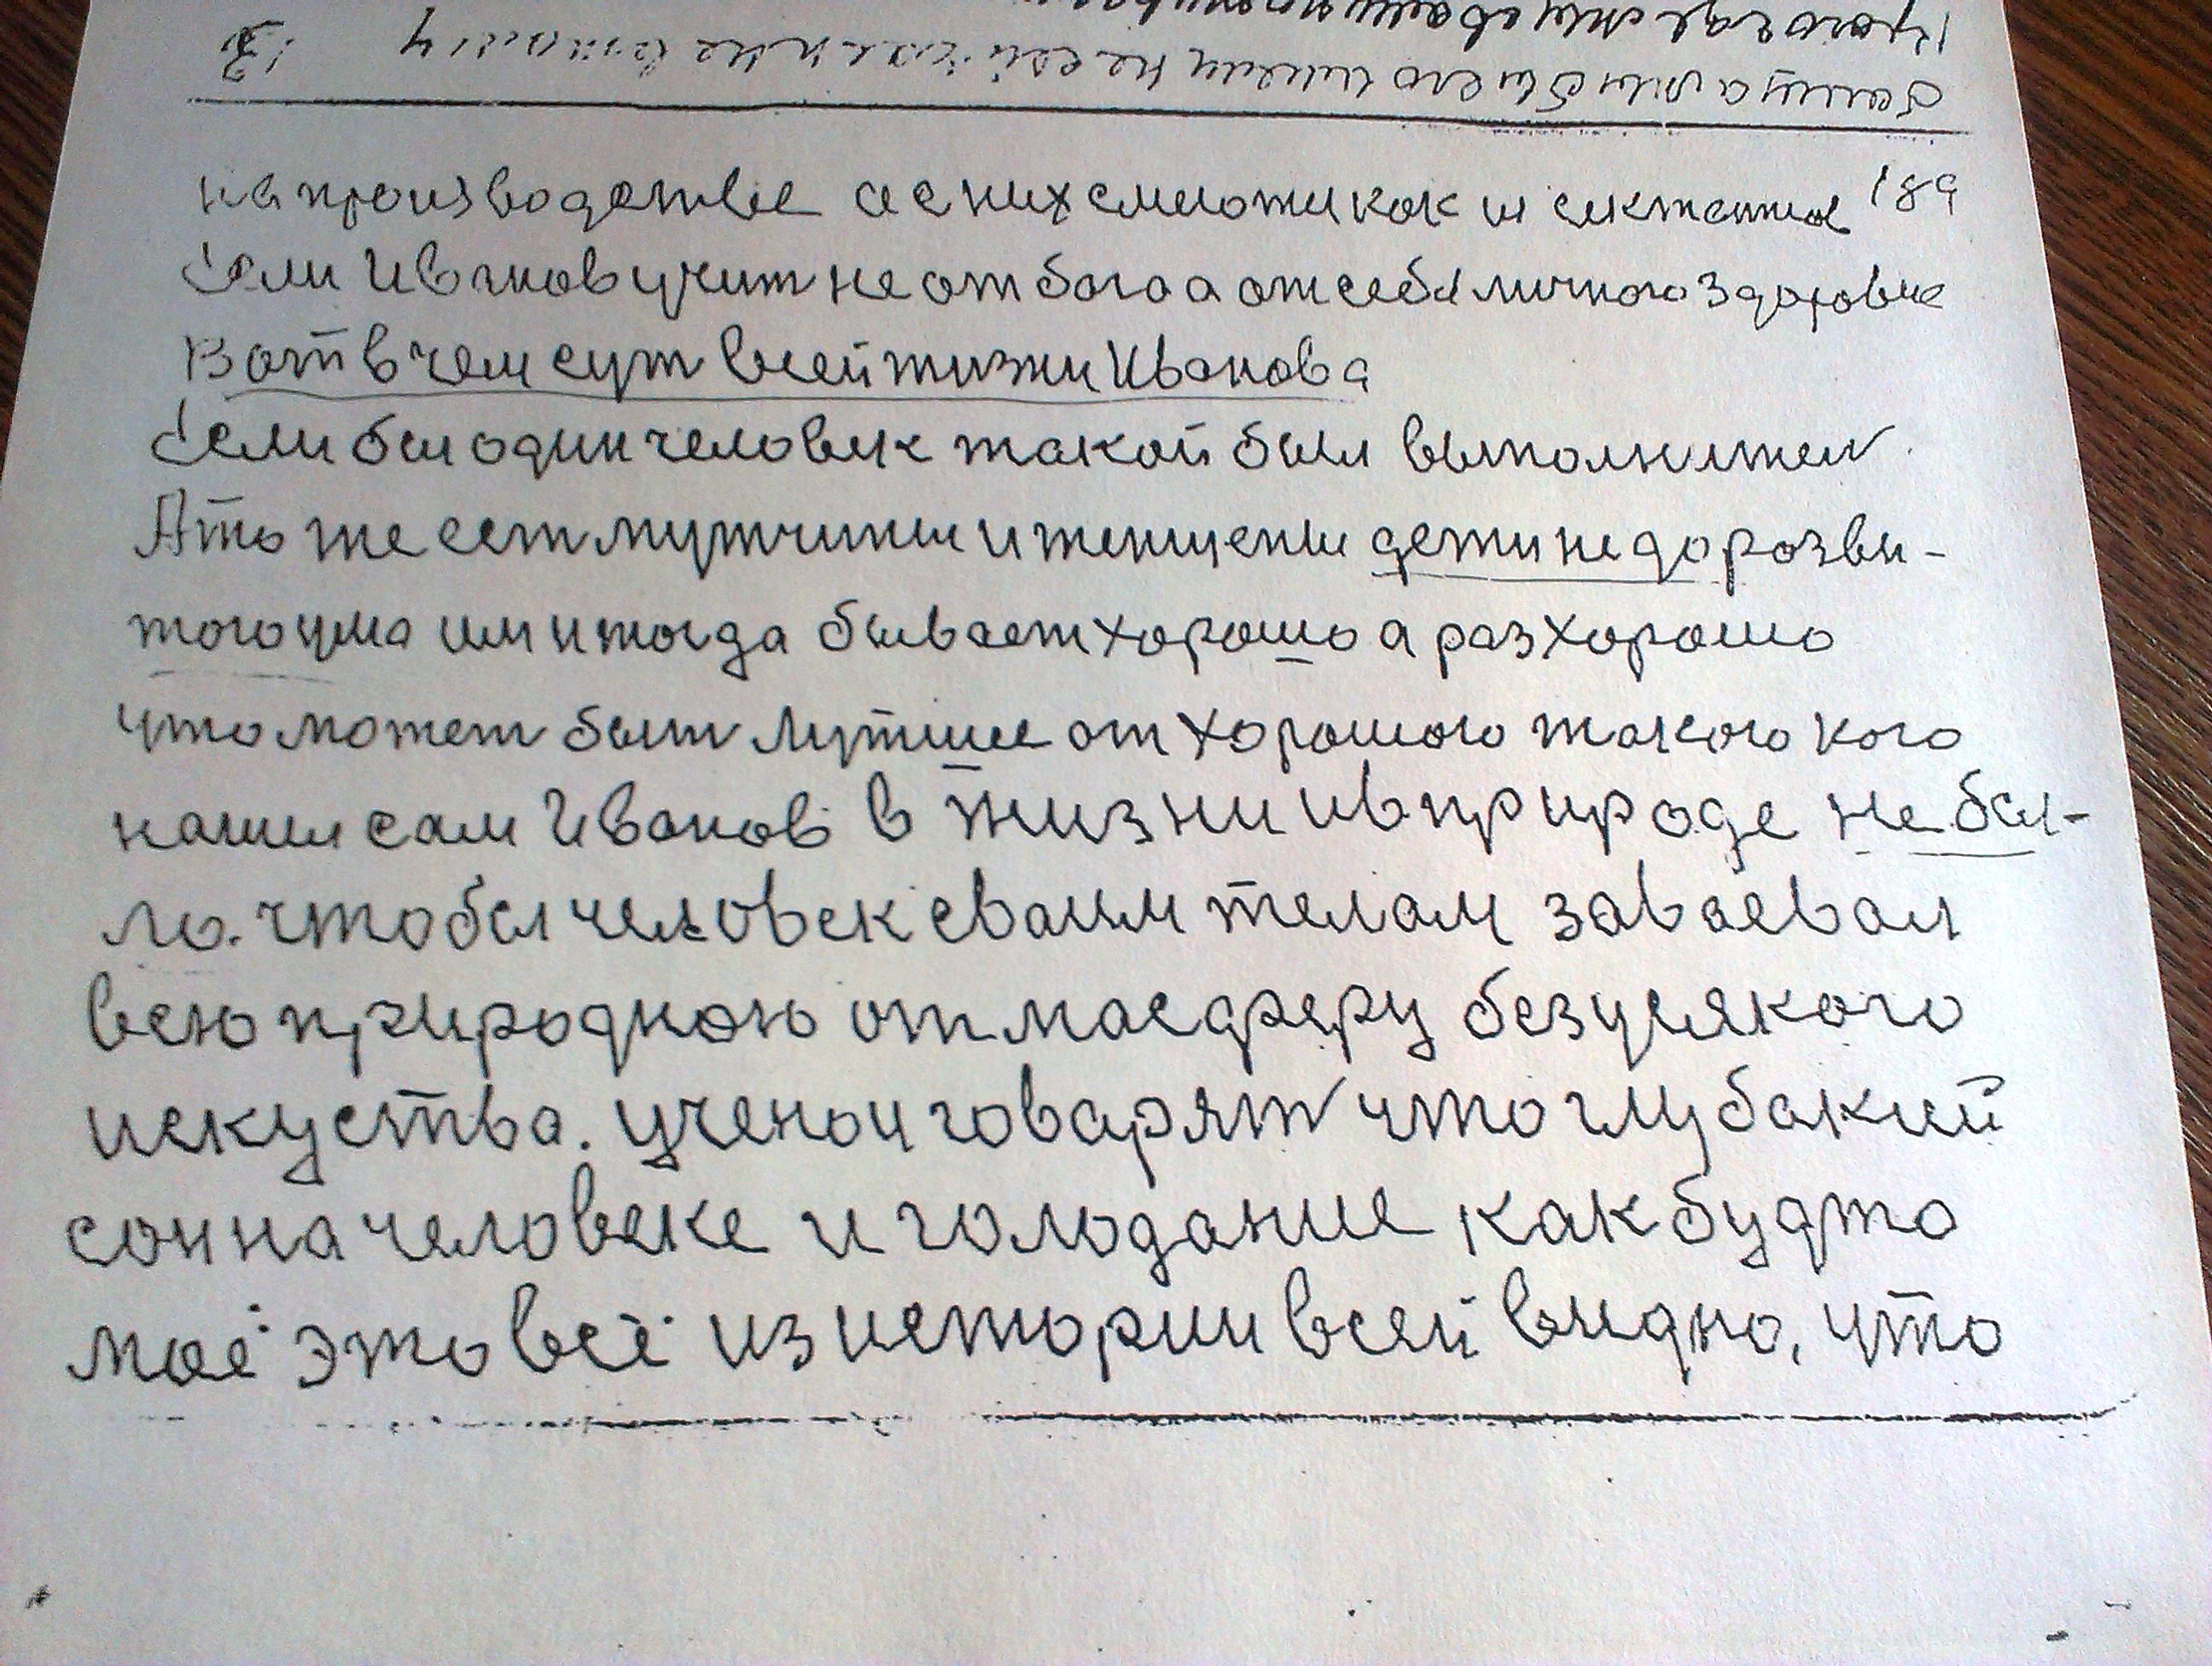 на производстве а с них смеютси как и сектантов 189
Если Иванов учит не от бога а от себя личного здоровие
Вот в чем сут всей жизни Иванова
Если бы один человек такой был выполнител.
А то же ест мужчины и женщены дети не до розви-
того ума им и тогда бывает хорошо а раз хорошо
что может быт лутше от хорошого такого кого
нашел сам Иванов в жизни и в природе не бы-
ло. что бы человек сваим телом заваевал
всю природною отмасферу без усякого
искуства. ученои говарят что глубакий
сон на человеке и голодание как будто
моё это всё из истории всей видно, что